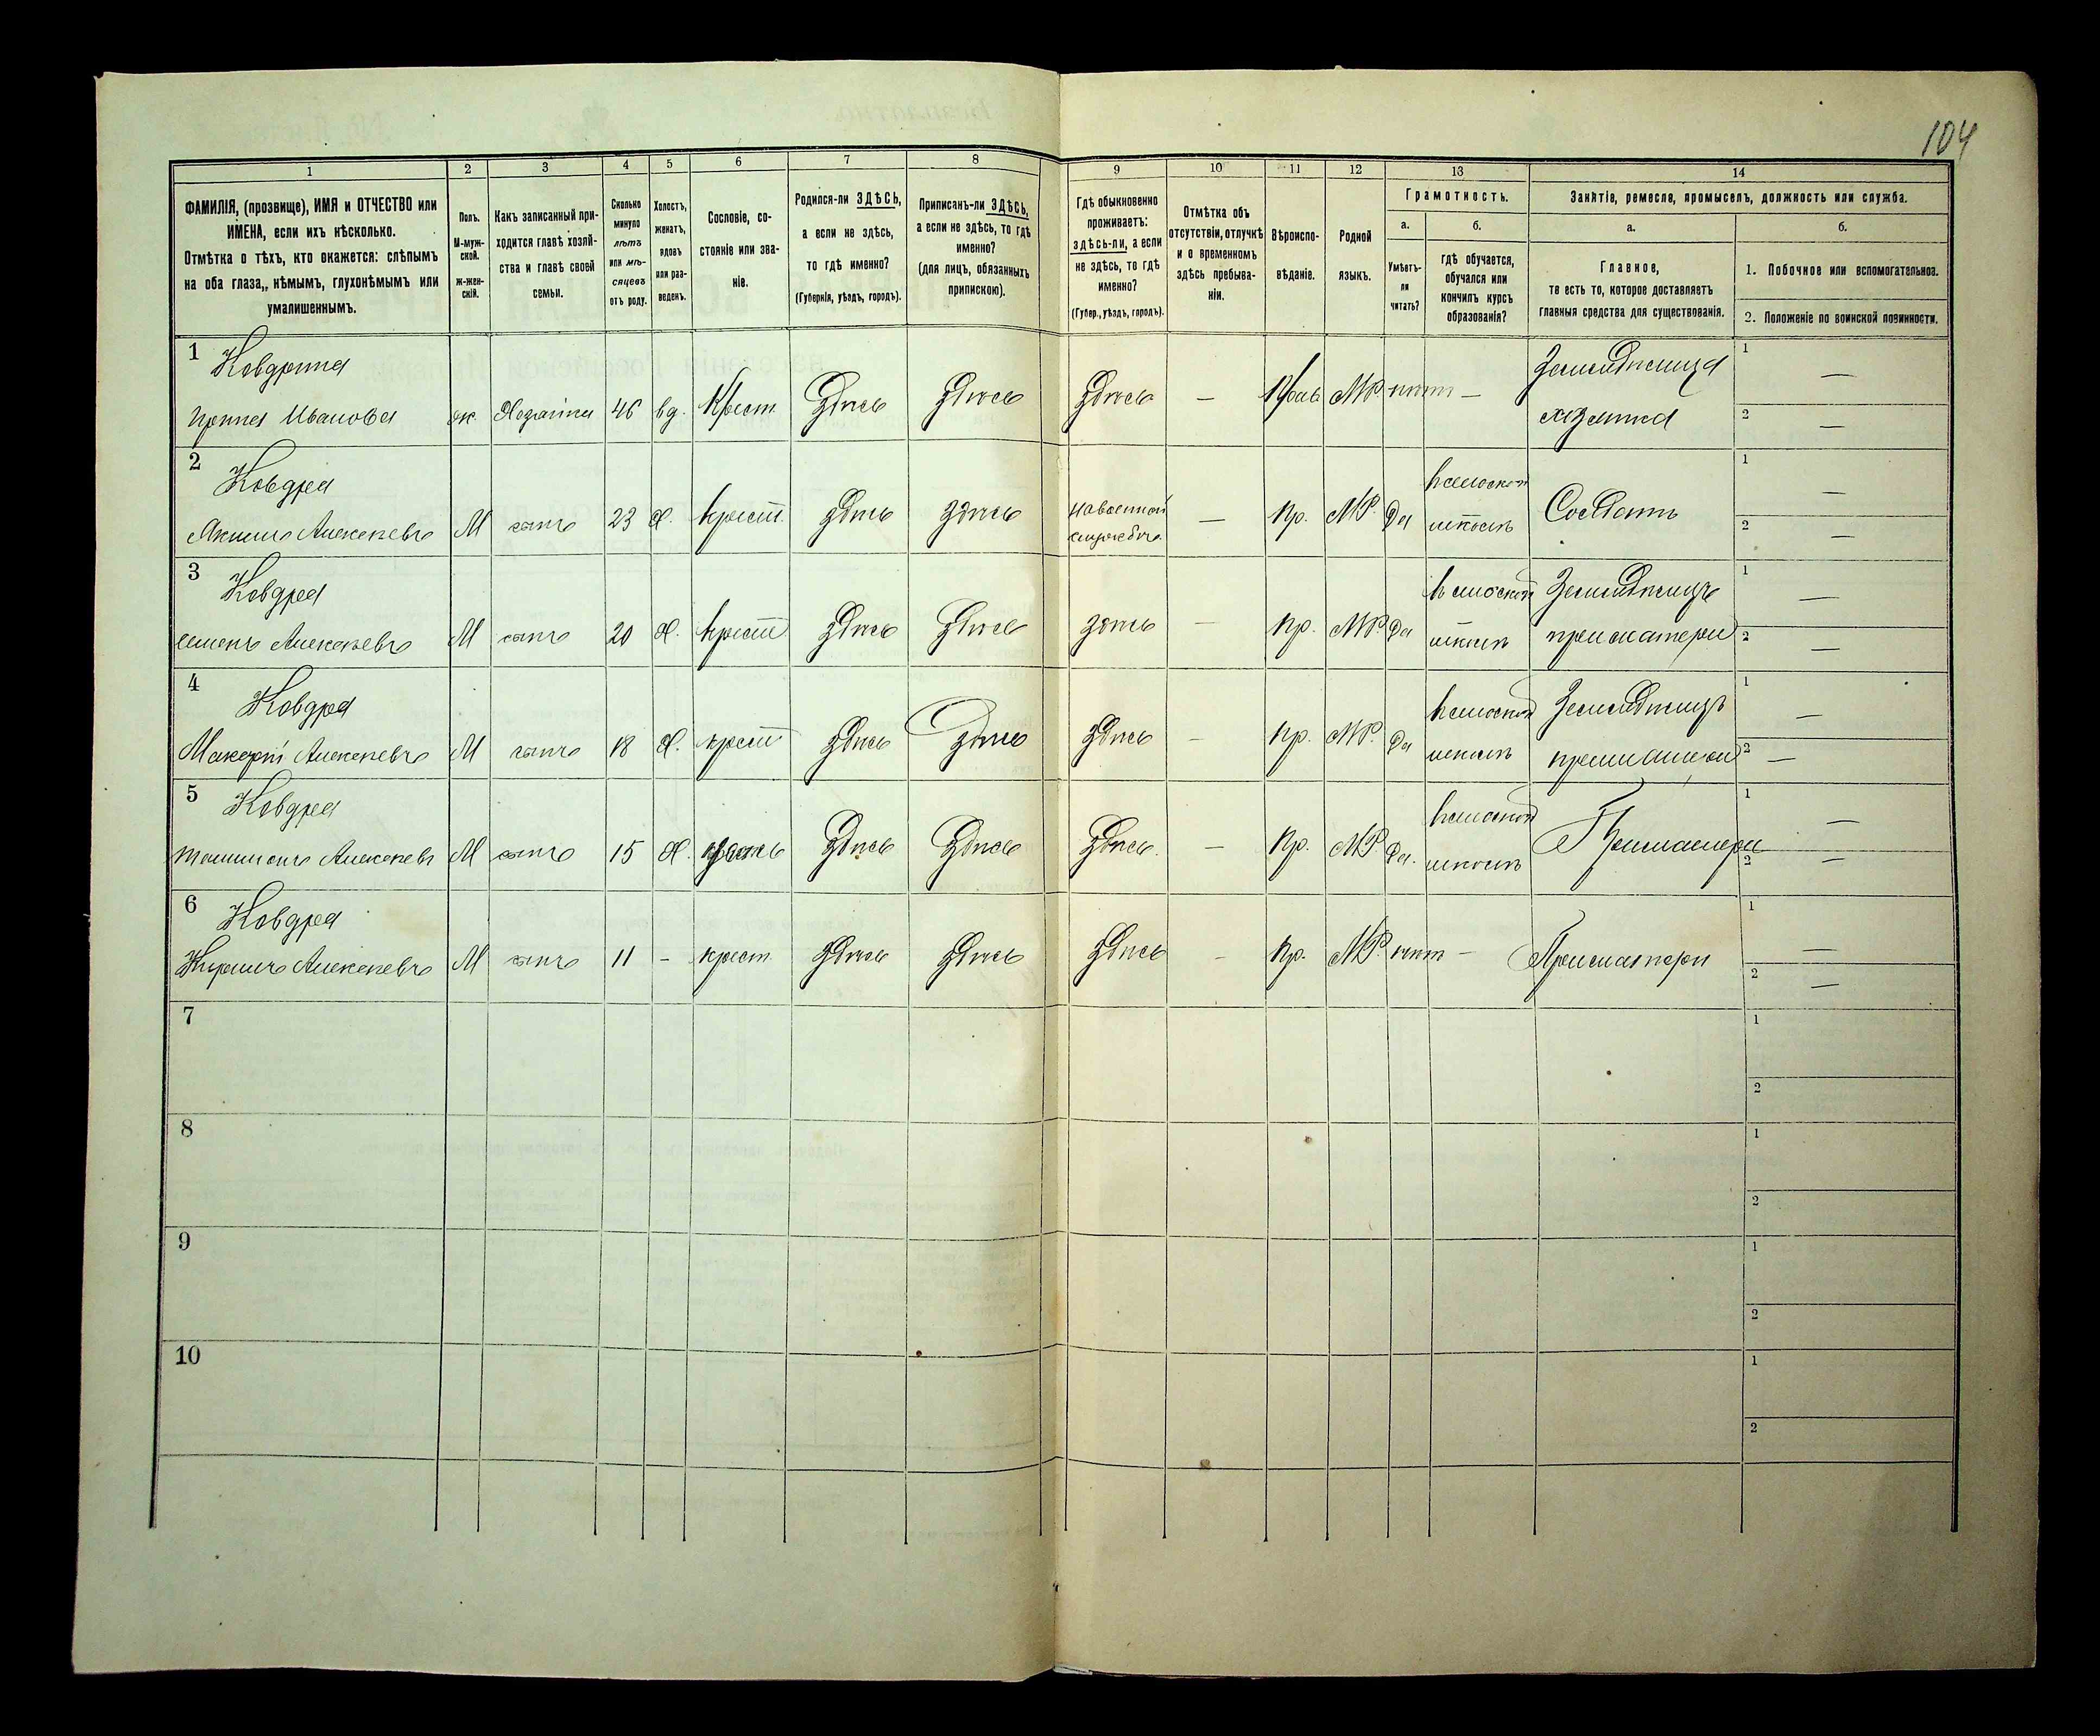 104
1
2
3
4
5
6
7
8
9
10
11
12
13
14
ФАМИЛІЯ, (прозвище), ИМЯ и ОТЧЕСТВО или
ИМЕНА, если ихъ нѣсколько.
Отмѣтка о тѣхъ, кто окажется: слѣпымъ
на оба глаза,, нѣмымъ, глухонѣмымъ или
умалишеннымъ.
Полъ.
М-муж-
ской.
ж-жен-
скій.
Какъ записанный при-
ходится главѣ хозяй-
ства и главѣ своей
семьи.
Сколько
минуло
лѣтъ
или мѣ-
сяцевъ
отъ роду.
Холостъ,
женатъ,
вдовъ
или раз-
веденъ.
Сословіе, со-
стояніе или зва-
ніе.
Родился-ли ЗДѢСЬ,
а если не здѣсь,
то гдѣ именно?
(Губернія, уѣздъ, городъ).
Приписанъ-ли ЗДѢСЬ,
а если не здѣсь, то гдѣ
именно?
(для лицъ, обязанныхъ
припискою).
Гдѣ обыкновенно
проживаетъ:
здѣсь-ли, а если
не здѣсь, то гдѣ
именно?
(Губер., уѣздъ, городъ).
Отмѣтка объ
отсутствіи, отлучкѣ
и о временномъ
здѣсь пребыва-
ніи.
Вѣроиспо-
вѣданіе.
Родной
языкъ.
Грамотность.
а.
Умѣетъ-
ли
читать?
б.
гдѣ обучается,
обучался или
кончилъ курсъ
образованія?
Занятіе, ремесло, промыселъ, должность или служба.
а.
Главное,
то есть то, которое доставляетъ
главныя средства для существованія.
б.
1. Побочное или вспомогательное.
2. Положеніе по воинской повинности.
1 Ковдрина
Ивановна ж. Хозяйка 46 вд. Крест. Здѣсь Здѣсь Здѣсь — Прав МР. нѣт —
Земледѣлица
хозяйка
1 —
2 —
2 Ковдра
Алексѣевъ М сынъ 23 Х. крест. здѣсь здѣсь
на военной
службѣ
— пр. МР. Да
в сельской
школѣ
Солдатъ
1 —
2 —
3 Ковдра
семенъ Алексѣевъ М сынъ 20 Х. крест. здѣсь здѣсь здѣсь — пр. МР. Да
в сельской
школѣ
Земледѣлецъ
при матери
1 —
2 —
4 Ковдра
Макарій Алексѣевъ М сынъ 18 Х. крест здѣсь здѣсь здѣсь — пр. МР. Да
в сельской
школѣ
Земледѣлецъ
1 —
2 —
5 Ковдра
Алексѣевъ М сынъ 15 Х. здѣсь здѣсь здѣсь — пр. МР. Да.
в сельской
школѣ
При матери
1 —
2 —
6 Ковдра
Кирилъ Алексѣевъ М сынъ 11 – крест. здѣсь здѣсь здѣсь – пр. МР. нѣт — При матери
1 —
2 —
7
1
2
8
1
2
9
1
2
10
1
2